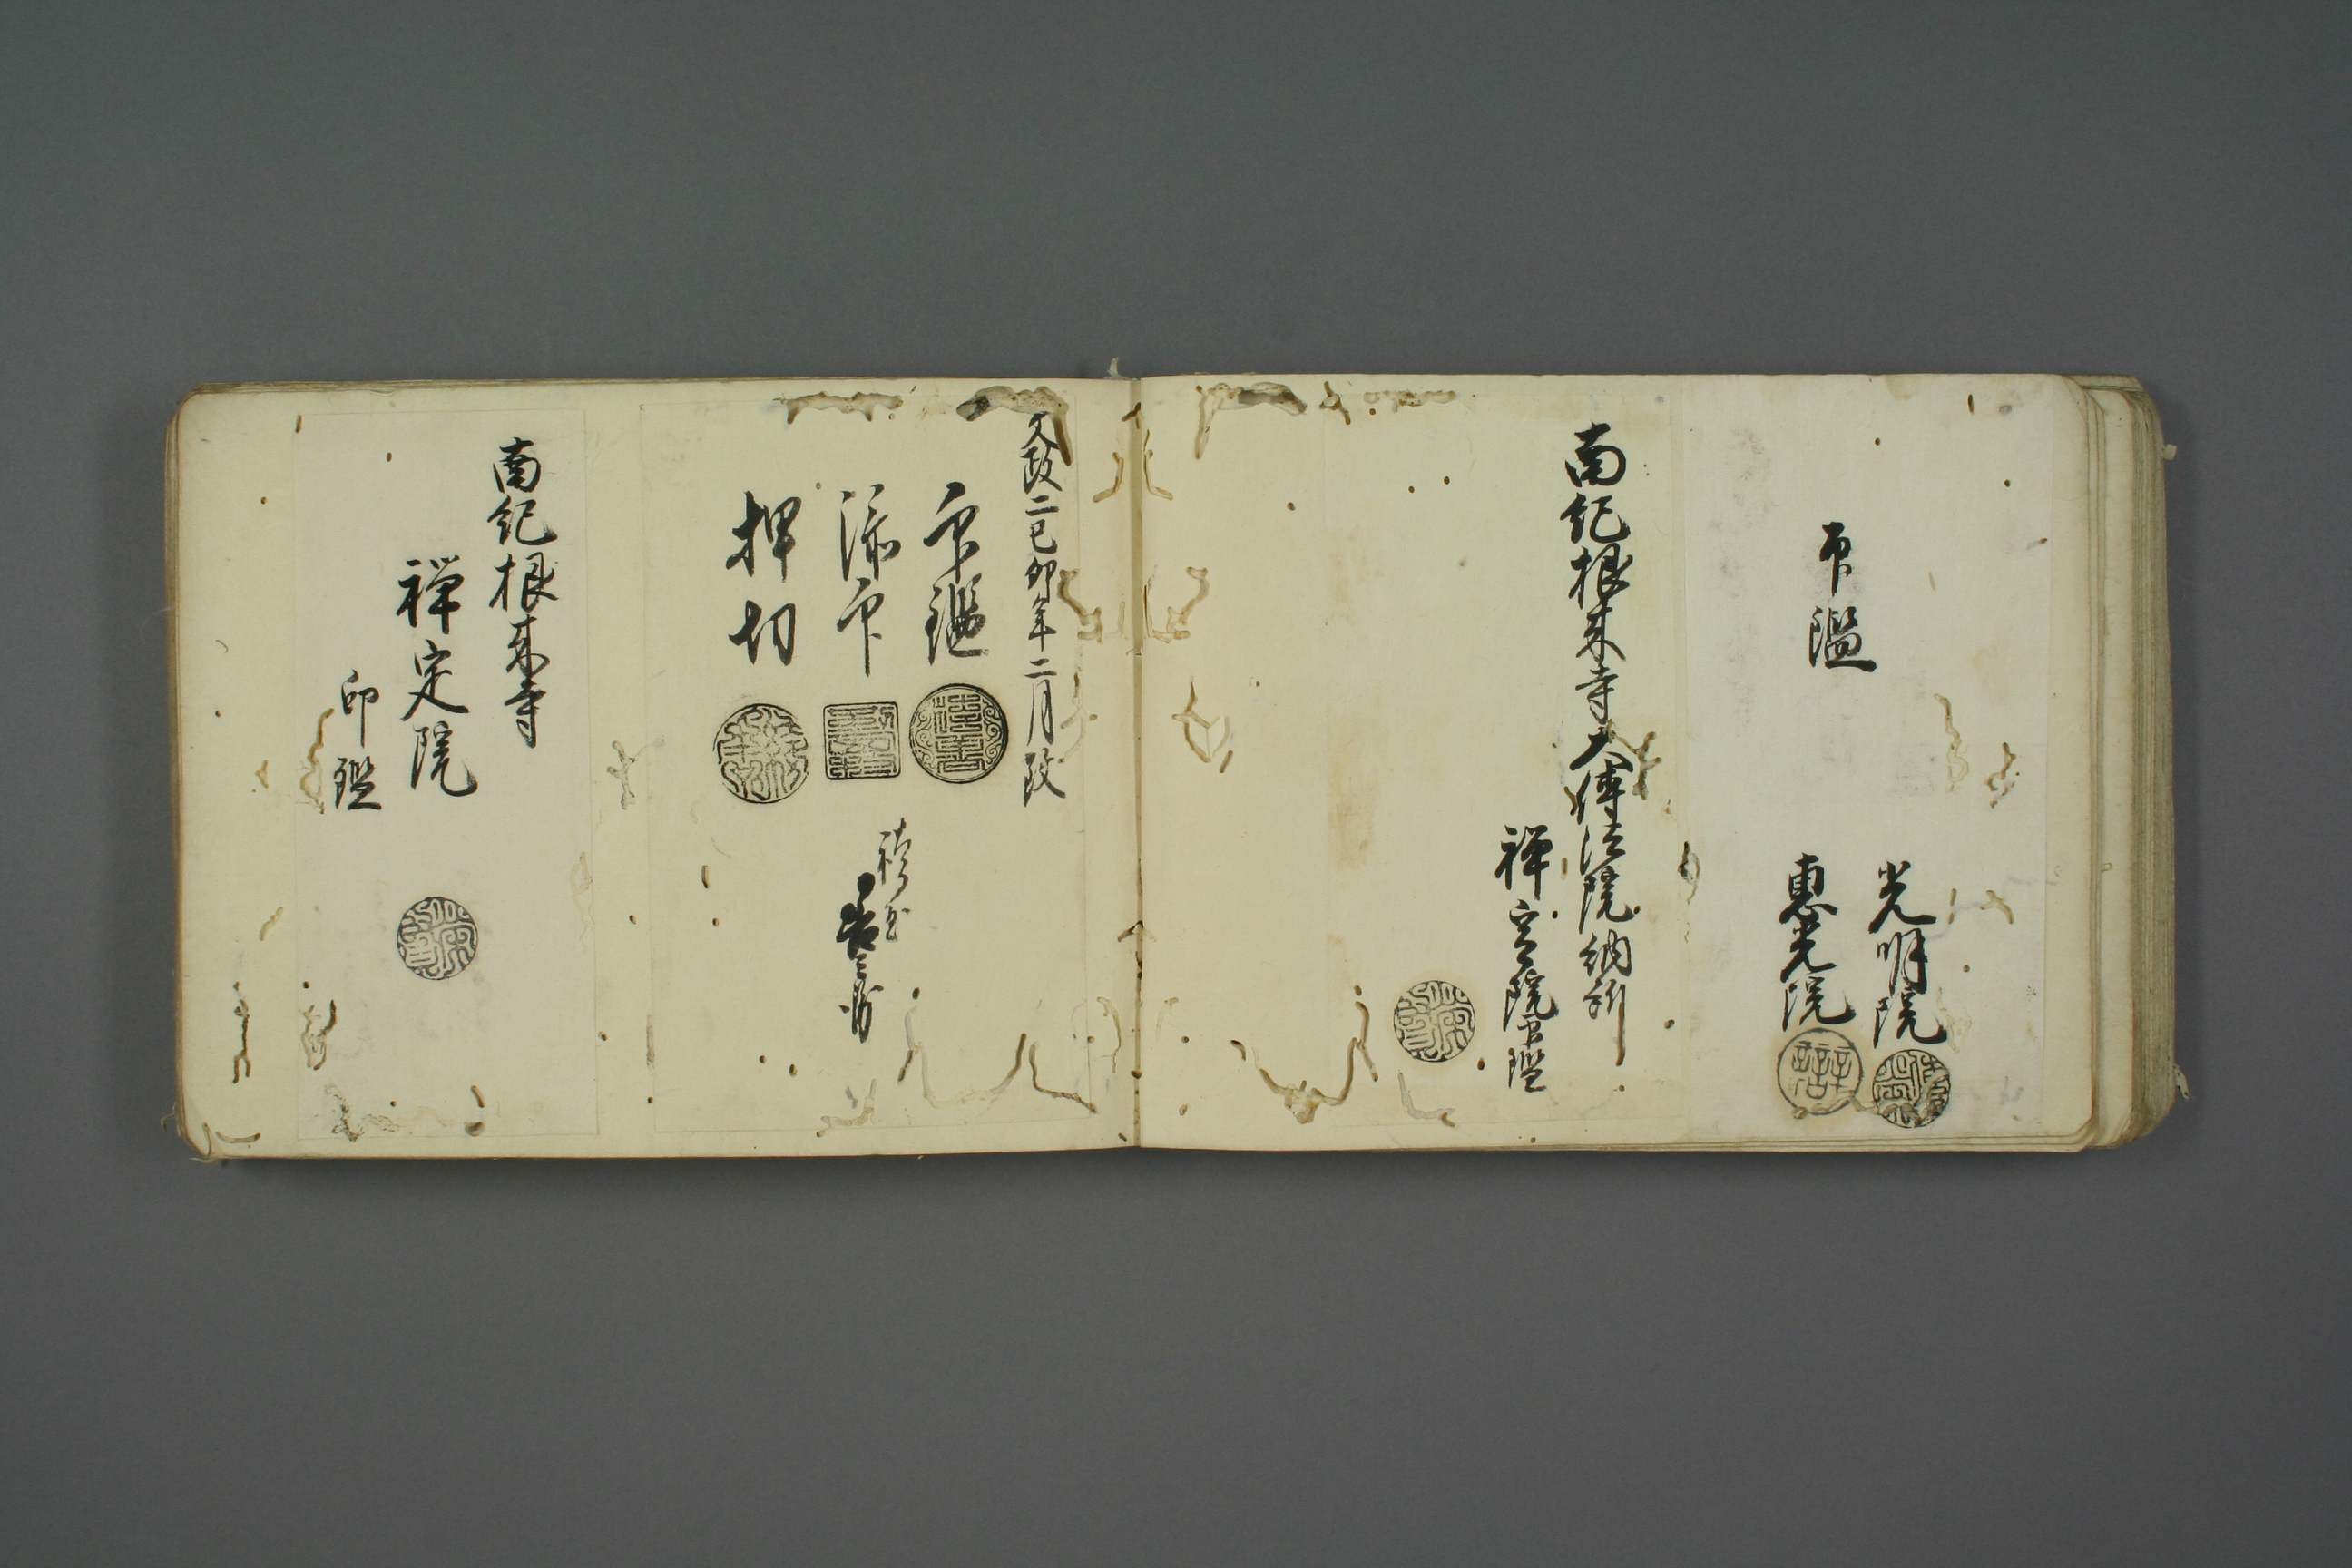 印鑑
光明院
恵光院
南紀根来寺大傳法院納所
禅定院印鑑
文政二己卯年二月改
印鑑
添印
押切
南紀根来寺
禅定院
印鑑